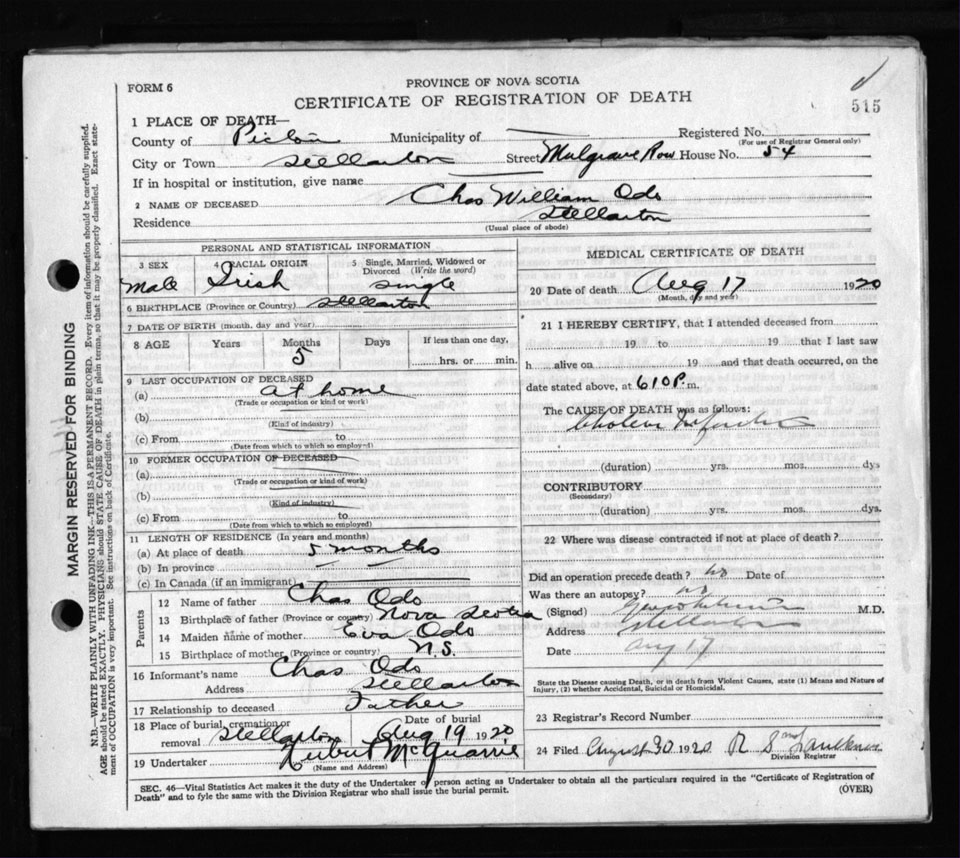 FORM 6
PROVINCE OF NOVA SCOTIA
CERTIFICATE OF REGISTRATION OF DEATH
515
1 PLACE OF DEATH—
County of Pictou Municipality of Registered No.
(For use of Registrar General only)
City or Town Stellarton Street Mulgrave Row House No. 54
If in hospital or institution, give name
2 NAME OF DECEASED Chas William Odo
Residence Stellarton
(Usual place of abode)
PERSONAL AND STATISTICAL INFORMATION
3 SEX Male
4 RACIAL ORIGIN Irish
5 Single, Married, Widowed or Divorced (Write the word) Single
6 BIRTHPLACE (Province or Country) Stellarton
7 DATE OF BIRTH (month, day and year)
8 AGE Years Months 5 Days If less than one day, hrs. or min.
9 LAST OCCUPATION OF DECEASED
(a) at home
(Trade or occupation or kind or work)
(b)
(Kind of industry)
(c) From to
(Date from which to which so employed)
10 FORMER OCCUPATION OF DECEASED
(a)
(Trade or occupation or kind of work)
(b)
(Kind of industry)
(c) From to
(Date from which to which so employed)
11 LENGTH OF RESIDENCE (In years and months)
(a) At place of death 5 months
(b) In province
(c) In Canada (if an immigrant)
Parents
12 Name of father Chas Odo
13 Birthplace of father (Province or country) Nova Scotia
14 Maiden name of mother Eva Odo
15 Birthplace of mother (Province or country) N.S.
16 Informant's name Chas Odo
Address Stellarton
17 Relationship to deceased Father
18 Place of burial, cremation or removal Stellarton Date of burial Aug 19 1920
19 Undertaker McQuarrie
(Name and Address)
MEDICAL CERTIFICATE OF DEATH
20 Date of death Aug 17 1920
(Month, day and year)
21 I HEREBY CERTIFY, that I attended deceased from
19 to 19 that I last saw
h alive on 19 and that death occurred, on the
date stated above, at 610 P. m.
The CAUSE OF DEATH was as follows:
Cholera Infantum
(duration) yrs. mos. dys
CONTRIBUTORY
(Secondary)
(duration) yrs. mos. dys.
22 Where was disease contracted if not at place of death?
Did an operation precede death? no Date of
Was there an autopsy? no
(Signed) M.D.
Address Stellarton
Date Aug 17
State the Disease causing Death, or in death from Violent Causes, state (1) Means and Nature of Injury, (2) whether Accidental, Suicidal or Homicidal.
23 Registrar's Record Number
24 Filed August 30 1920
Division Registrar
SEC. 46—Vital Statistics Act makes it the duty of the Undertaker or person acting as Undertaker to obtain all the particulars required in the "Certificate of Registration of
Death" and to fyle the same with the Division Registrar who shall issue the burial permit.
(OVER)
MARGIN RESERVED FOR BINDING
N.B.—WRITE PLAINLY WITH UNFADING INK—THIS IS A PERMANENT RECORD. Every item of information should be carefully supplied.
AGE should be stated EXACTLY. PHYSICIANS should STATE CAUSE OF DEATH in plain terms, so that it may be properly classified. Exact state-
ment of OCCUPATION is very important. See instructions on back of Certificate.